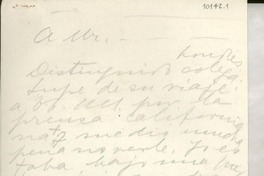 10142.1
A Mr. —
Londres
Distinguido colega:
Supe de su viaje
a EE. UU. por la
prensa californiana
y me dio mucha
pena no verle. Yo es
taba, bajo una